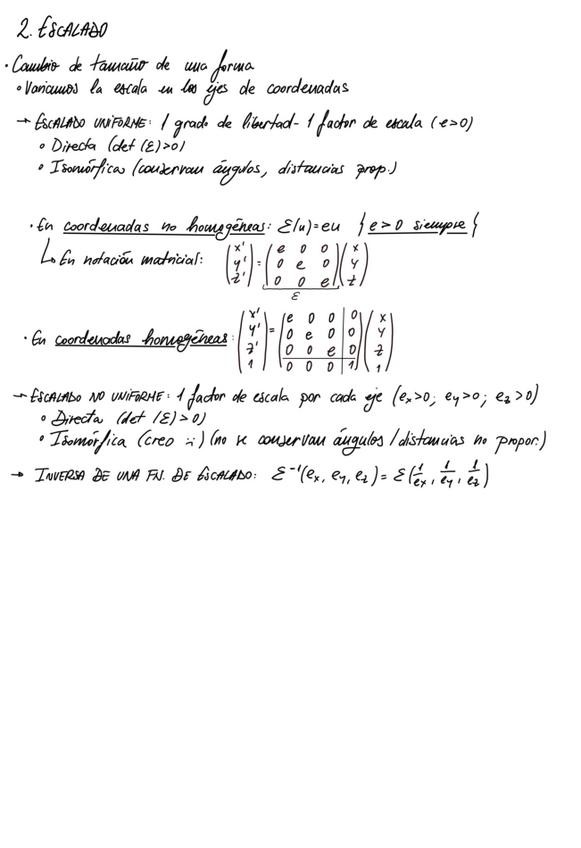 2. ESCALADO
· Cambio de tamaño de una forma
• Variamos la escala en los ejes de coordenadas
→ ESCALADO UNIFORME: 1 grado de libertad - 1 factor de escala (e>0)
• Directa (det (E)>0)
• Isomórfica (conservan ángulos, distancias prop.)
· En coordenadas no homogéneas: E(u)=eu {e>0 siempre}
↳ En notación matricial: (x' y' z') = (e 0 0 / 0 e 0 / 0 0 e) (x y z)
E
· En coordenadas homogéneas: (x' y' z' 1) = (e 0 0 0 / 0 e 0 0 / 0 0 e 0 / 0 0 0 1) (x y z 1)
→ ESCALADO NO UNIFORME: 1 factor de escala por cada eje (ex>0; ey>0; ez>0)
• Directa (det (E)>0)
• Isomórfica (creo :-) (no se conservan ángulos / distancias no propor.)
→ INVERSA DE UNA FN. DE ESCALADO: E⁻¹(ex, ey, ez) = E(1/ex, 1/ey, 1/ez)